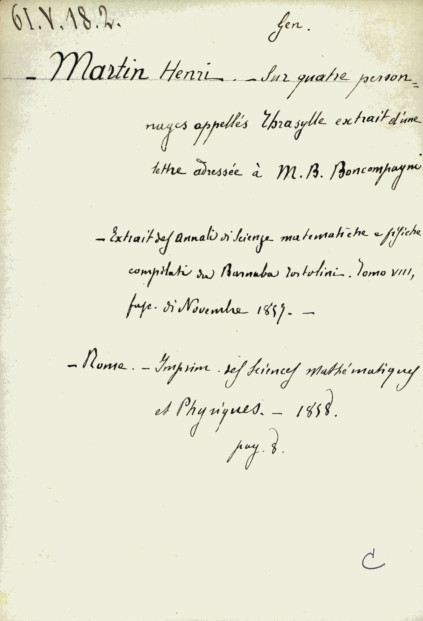 61.V.18.2.
Gen.
- Martin Henri. - Sur quatre person=
nages appellés Thrasylle extrait d'une
lettre adressée à M.B. Boncompagni
- Extrait des Annali di Scienze matematiche e fisiche
compilati da Barnaba Tortolini. Tomo VIII,
fasc. di Novembre 1857. -
- Rome. - Imprim. des Sciences Mathématiques
et Physiques. - 1858.
pag. 8.
C